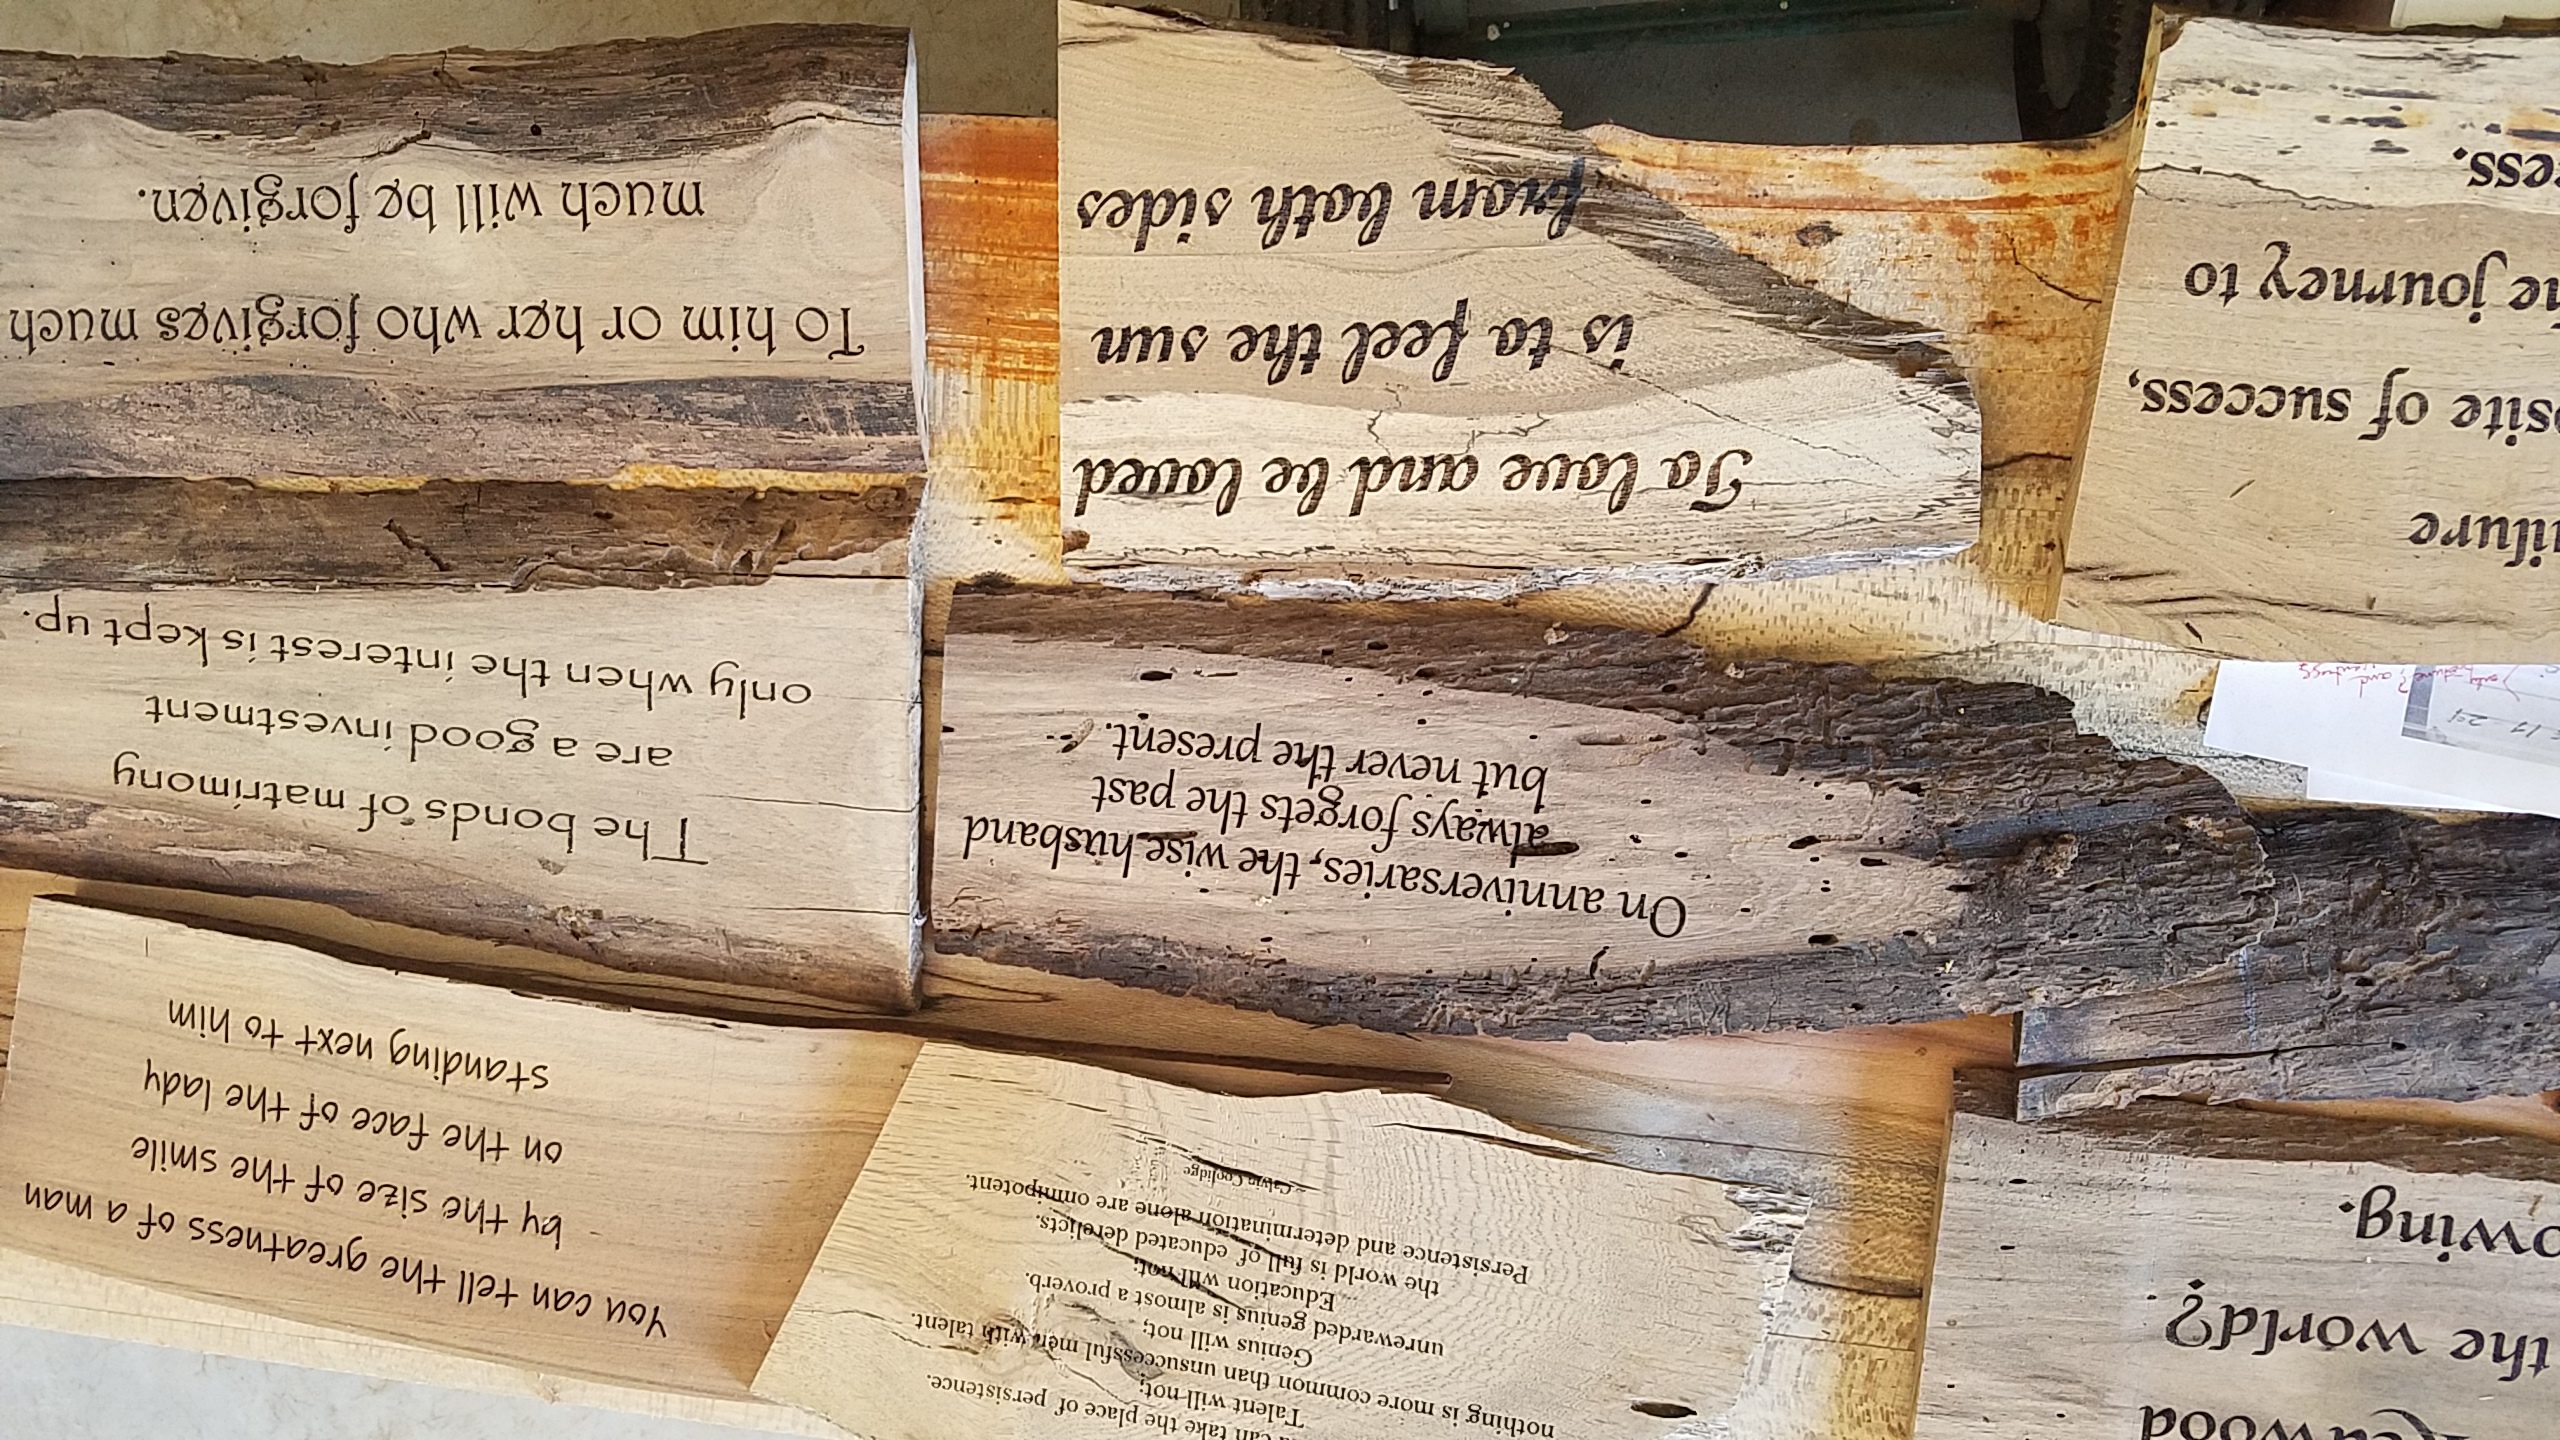 Redwood
the world?
owing.
can take the place of persistence.
Talent will not;
nothing is more common than unsuccessful men with talent.
Genius will not;
unrewarded genius is almost a proverb.
Education will not;
the world is full of educated derelicts.
Persistence and determination alone are omnipotent.
~ Calvin Coolidge
You can tell the greatness of a man
by the size of the smile
on the face of the lady
standing next to him
On anniversaries, the wise husband
always forgets the past
but never the present.
The bonds of matrimony
are a good investment
only when the interest is kept up.
ilure
site of success,
e journey to
ess.
To love and be loved
is to feel the sun
from both sides
To him or her who forgives much
much will be forgiven.